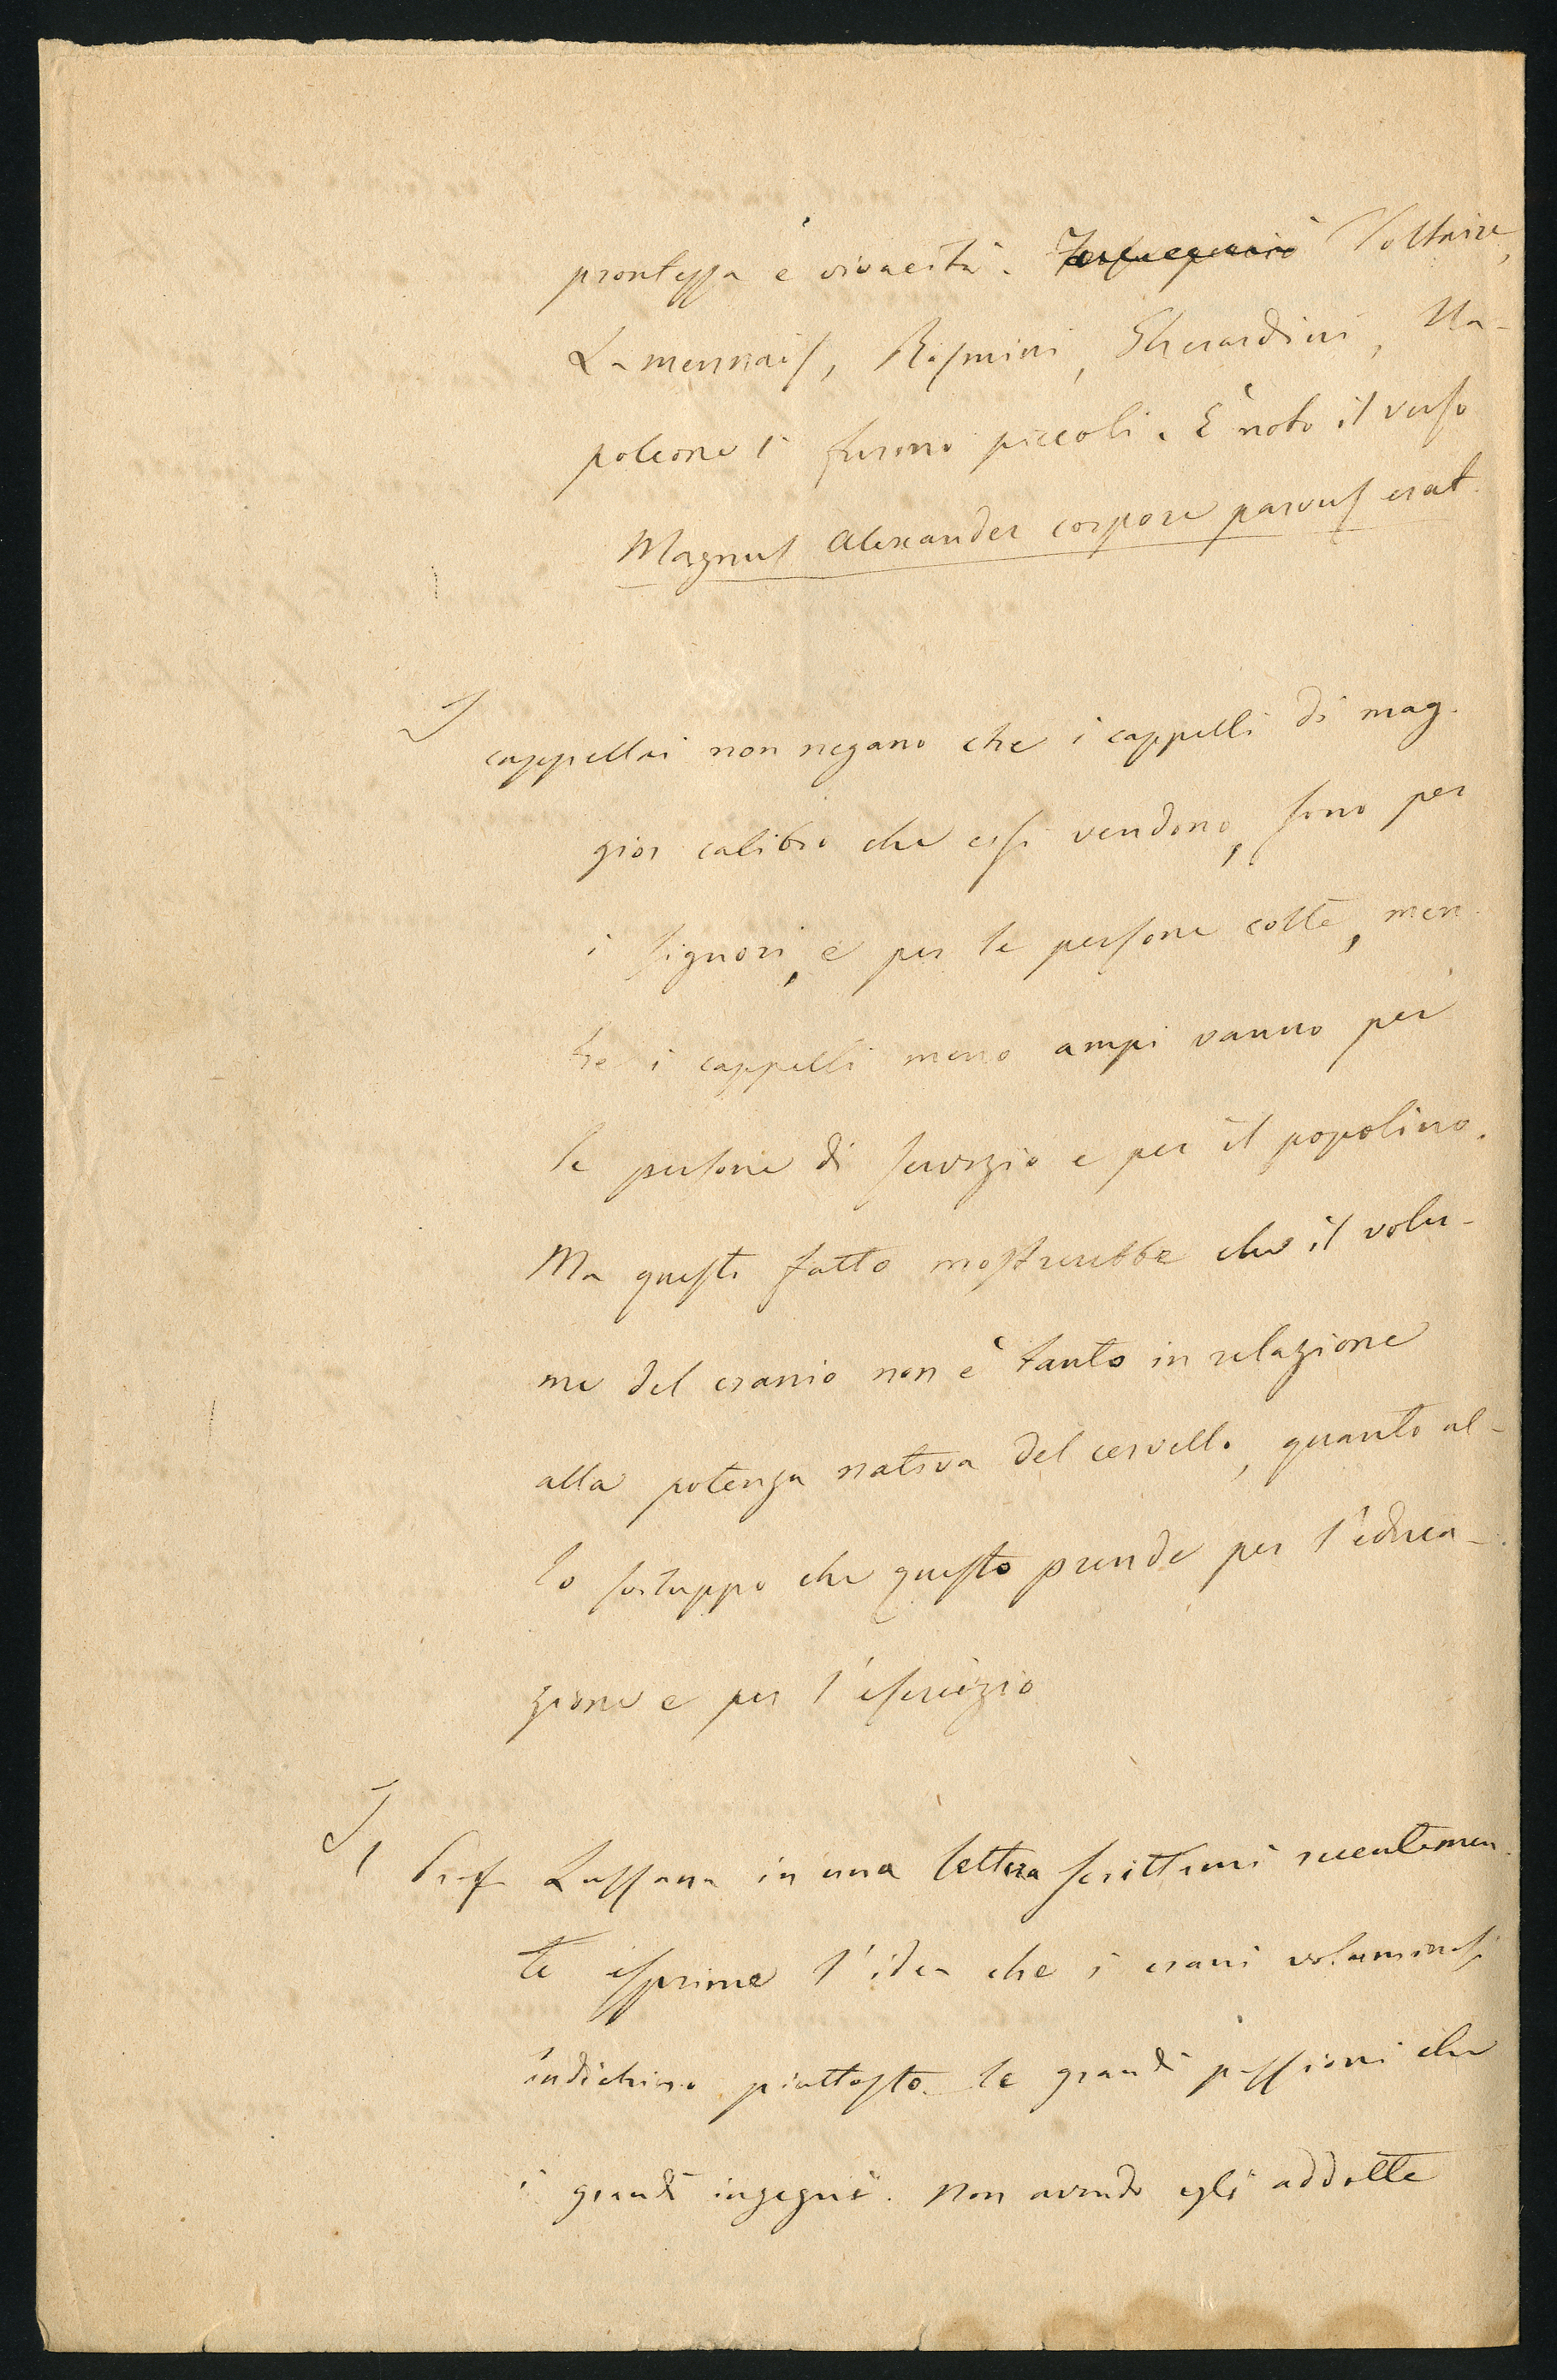 prontezza e vivacità. Voltaire,
Lamennais, Rosmini, Gherardini, Na-
poleone I furono piccoli. È noto il verso
Magnus Alexander corpore parvus erat.
I cappellai non negano che i cappelli di mag-
gior calibro che essi vendono, sono per
i signori, e per le persone colte, men-
tre i cappelli meno ampi vanno per
le persone di servizio e per il popolino.
Ma questo fatto mostrerebbe che il volu-
me del cranio non è tanto in relazione
alla potenza nativa del cervello, quanto al-
lo sviluppo che questo prende per l'educa-
zione e per l'esercizio
Il Prof Lussana in una lettera scrittami recentemen-
te esprime l'idea che i crani voluminosi
indichino piuttosto le grandi passioni che
i grandi ingegni. Non avendo egli addotte